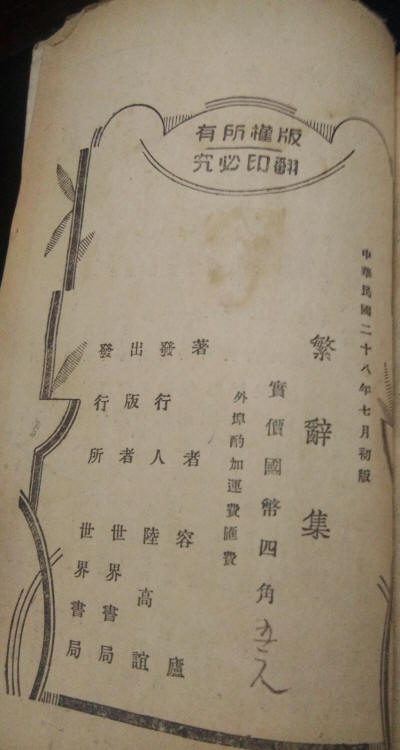 版權所有
翻印必究
中華民國二十八年七月初版
繁辭集
實價國幣四角
外埠酌加運費匯費
著者 容廬
發行人 陸高誼
出版者 世界書局
發行所 世界書局